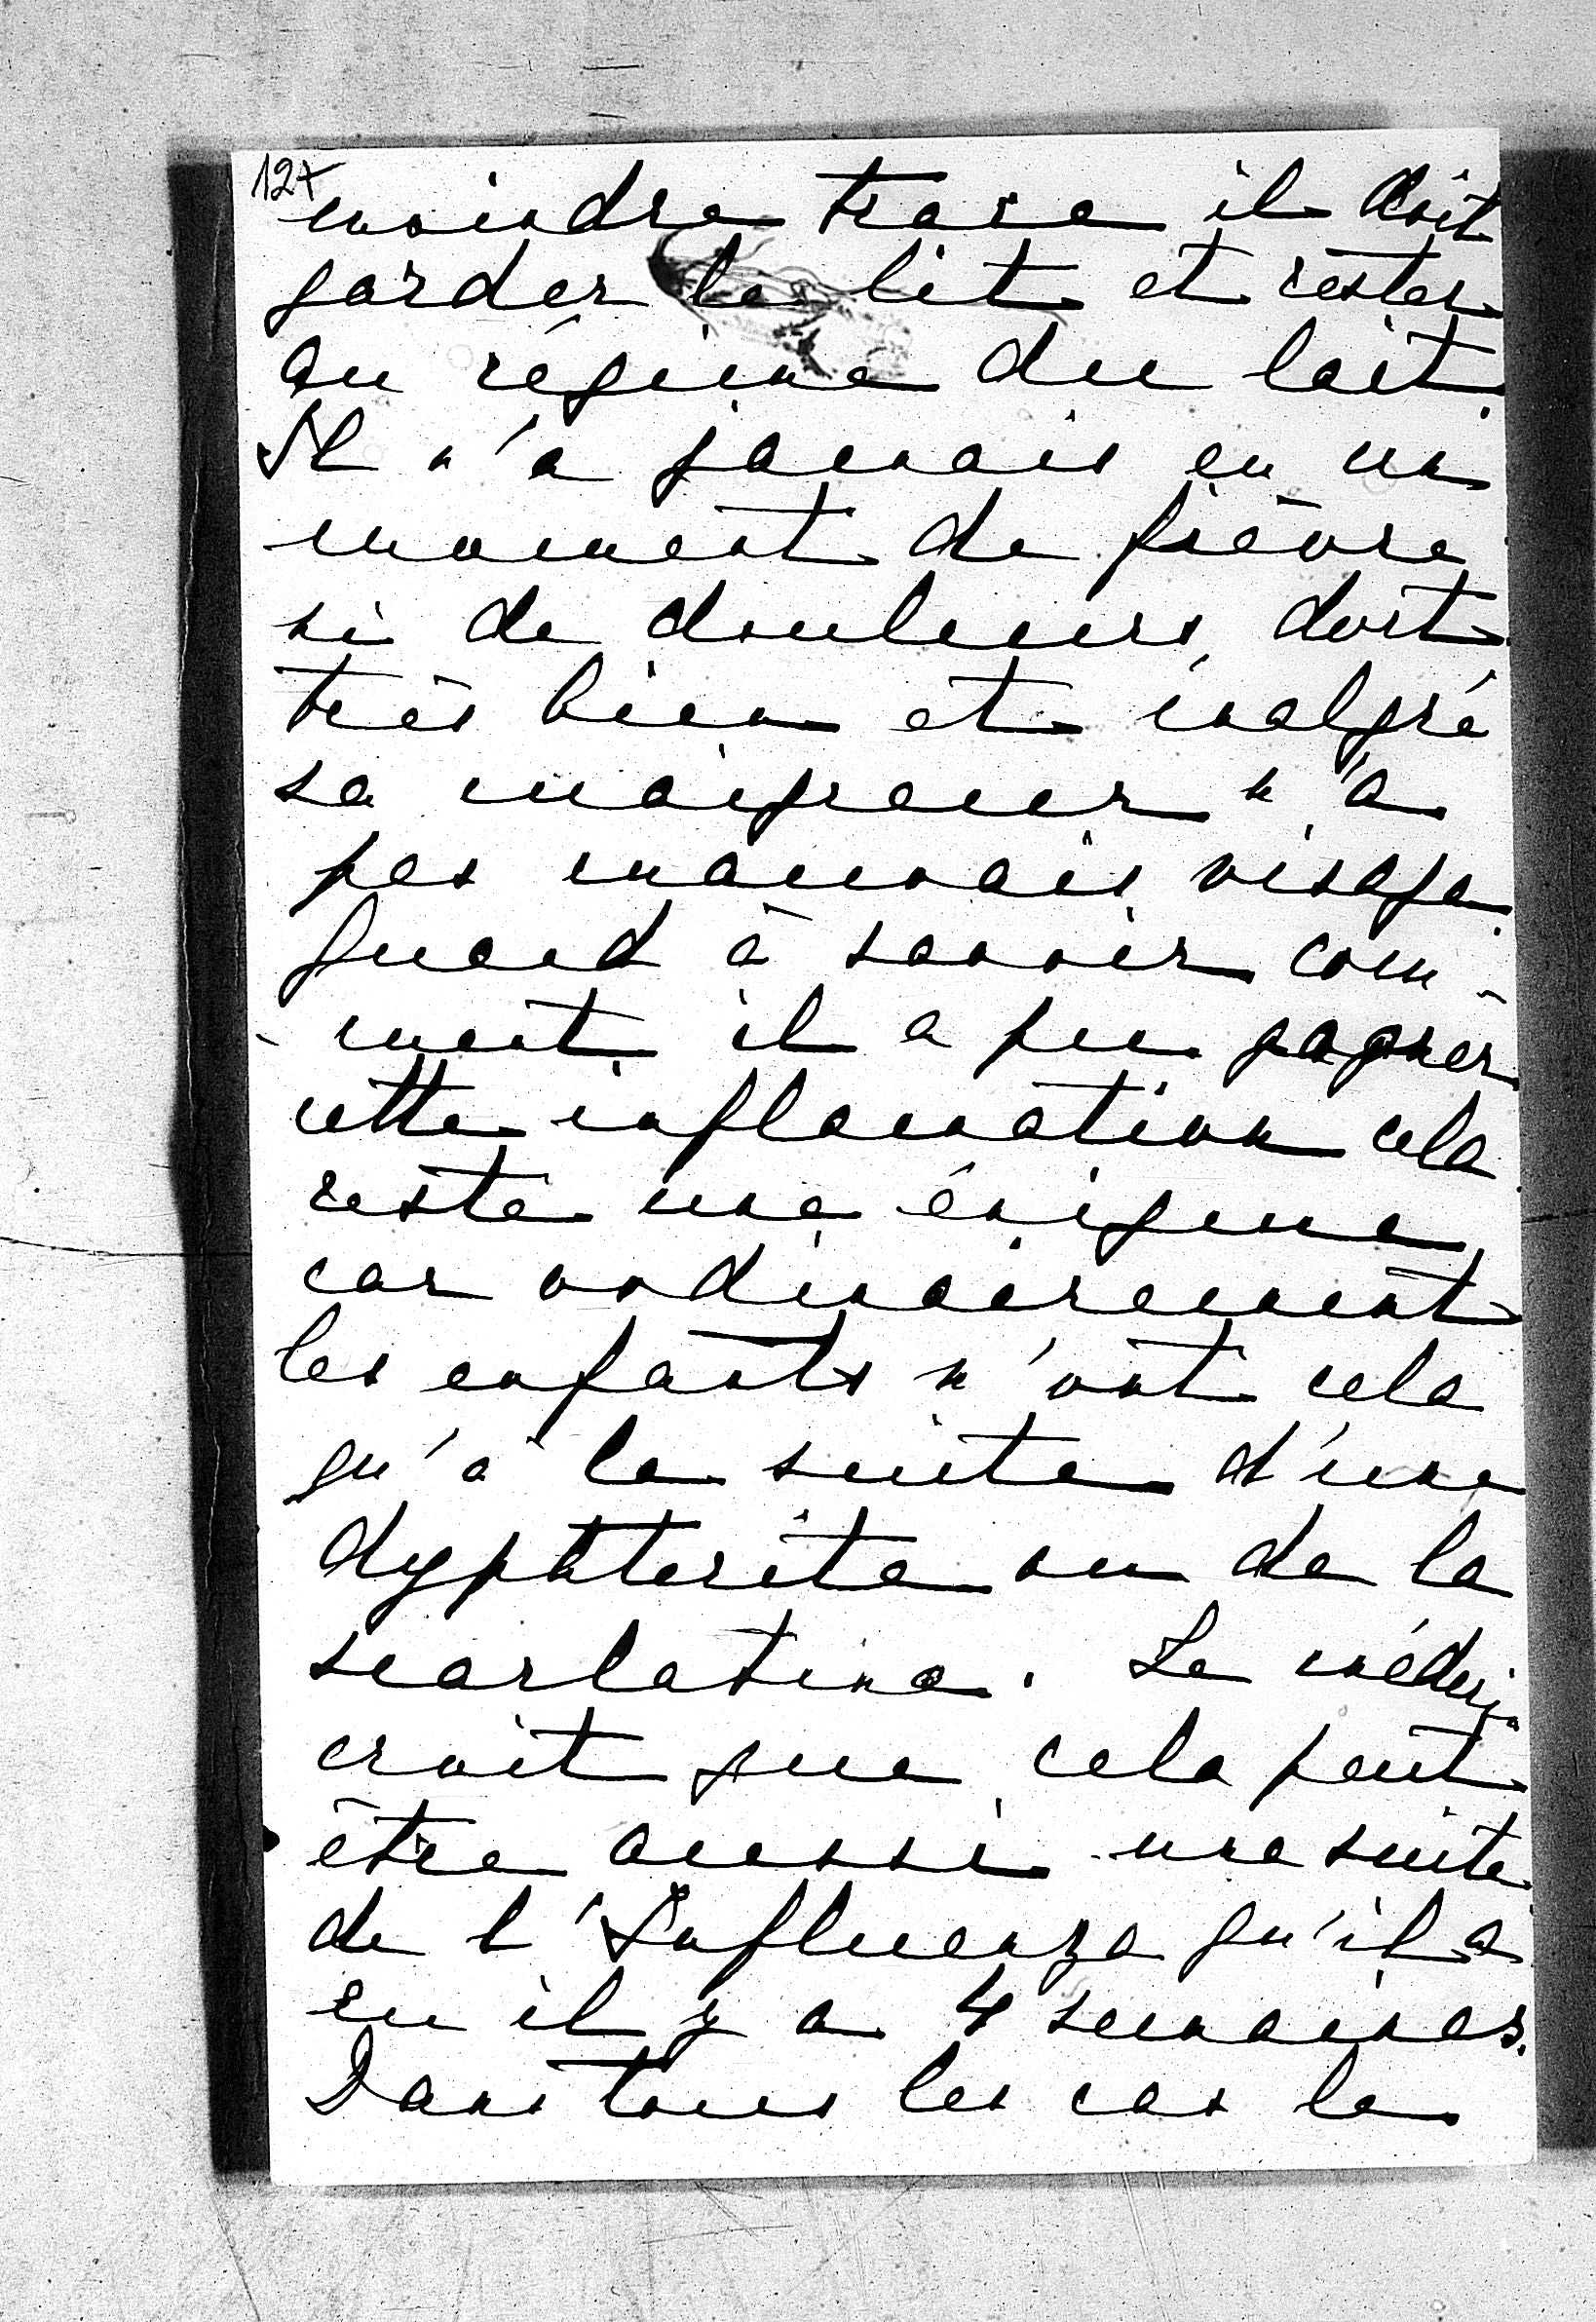 127
moindre trace il doit
garder le lit et rester
au régime du lait.
Il n'a jamais eu un
moment de fièvre
ni de douleurs, dort
très bien et malgré
sa maigreur n'a
pas mauvais visage.
Quand à savoir com-
-ment il a pu gagner
cette inflamation cela
reste une énigme
car ordinairement
les enfants n'ont cela
qu'à la suite d'une
dyphterite ou de la
scarlatine. Le médecin
croit que cela peut
être aussi une suite
de l'Influenza qu'il a
eu il y a 4 semaines.
Dans tous les cas le